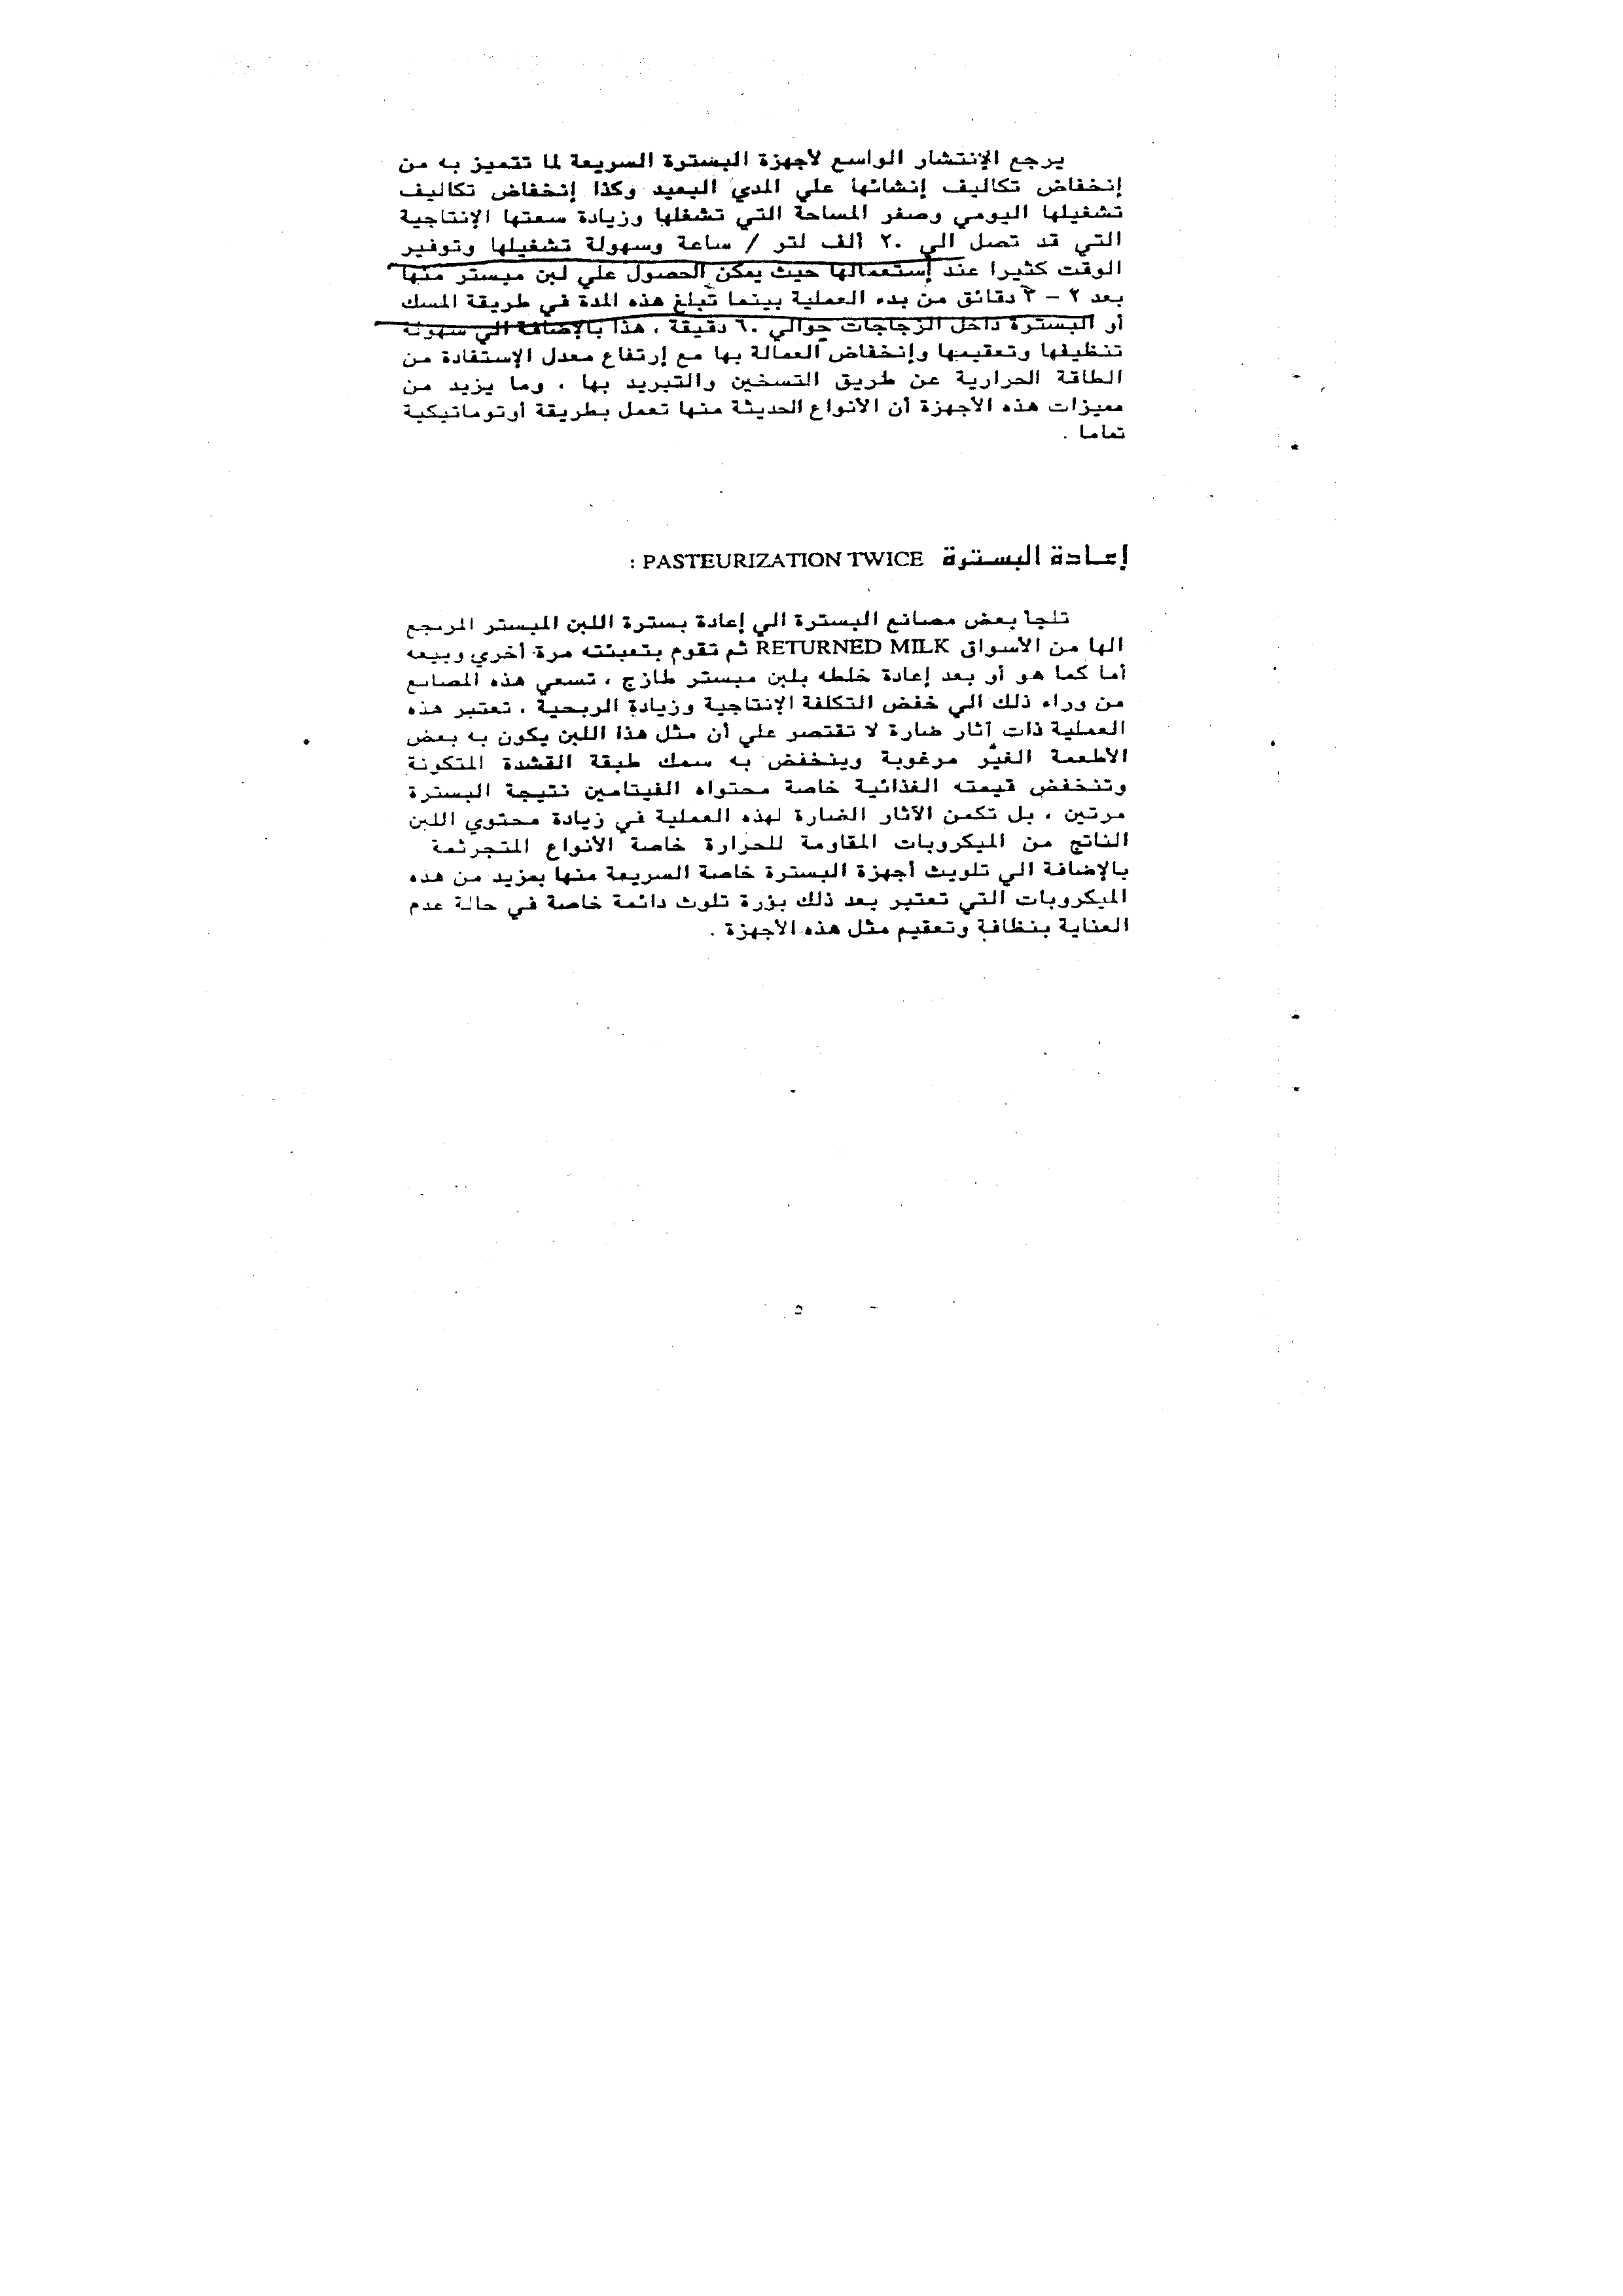 يرجع الإنتشار الواسع لأجهزة البسترة السريعة لما تتميز به من
إنخفاض تكاليف إنشائها علي المدي البعيد وكذا إنخفاض تكاليف
تشغيلها اليومي وصغر المساحة التي تشغلها وزيادة سعتها الإنتاجية
التي قد تصل الي ٢٠ ألف لتر / ساعة وسهولة تشغيلها وتوفير
الوقت كثيرا عند إستعمالها حيث يمكن الحصول علي لبن مبستر منها
بعد ٢ - ٣ دقائق من بدء العملية بينما تبلغ هذه المدة في طريقة المسك
أو البسترة داخل الزجاجات حوالي ٦٠ دقيقة ، هذا بالإضافة الي سهولة
تنظيفها وتعقيمها وإنخفاض العمالة بها مع إرتفاع معدل الإستفادة من
الطاقة الحرارية عن طريق التسخين والتبريد بها ، وما يزيد من
مميزات هذه الأجهزة أن الأنواع الحديثة منها تعمل بطريقة أوتوماتيكية
تماما .
إعادة البسترة PASTEURIZATION TWICE :
تلجا بعض مصانع البسترة الي إعادة بسترة اللبن المبستر المرتجع
الها من الأسواق RETURNED MILK ثم تقوم بتعبئته مرة أخري وبيعه
أما كما هو أو بعد إعادة خلطه بلبن مبستر طازج ، تسعي هذه المصانع
من وراء ذلك الي خفض التكلفة الإنتاجية وزيادة الربحية ، تعتبر هذه
العملية ذات آثار ضارة لا تقتصر علي أن مثل هذا اللبن يكون به بعض
الأطعمة الغير مرغوبة وينخفض به سمك طبقة القشدة المتكونة
وتنخفض قيمته الغذائية خاصة محتواه الفيتامين نتيجة البسترة
مرتين ، بل تكمن الآثار الضارة لهذه العملية في زيادة محتوي اللبن
الناتج من الميكروبات المقاومة للحرارة خاصة الأنواع المتجرثمة
بالإضافة الي تلويث أجهزة البسترة خاصة السريعة منها بمزيد من هذه
الميكروبات التي تعتبر بعد ذلك بؤرة تلوث دائمة خاصة في حالة عدم
العناية بنظافة وتعقيم مثل هذه الأجهزة .